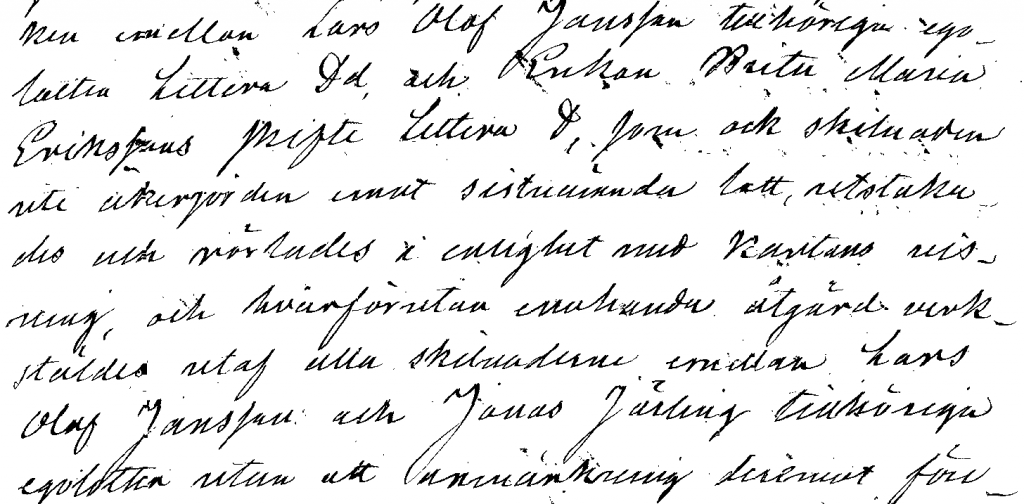 ken emellan Lars Olof Jansson tillhöriga ego-
lotten Littera Dd, och Enkan Brita Maria
Erikssons skifte Littera D, som ock skilnaden
ute åkerjorden emot sistnämnda lott, utstaka-
des och rörlades i enlighet med Kartans vis-
ning, och hvarförutan enahanda åtgärd verk-
stäldes utaf alla skilnaderne emellan Lars
Olof Jansson och Jonas Järling tillhöriga
egolotter utan att anmärkning deremot före-